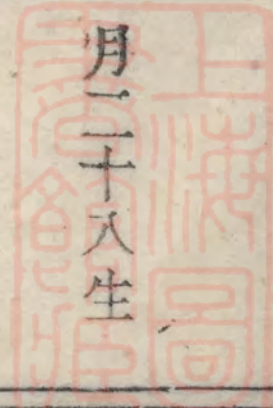 月二十八生
上海圖
書館藏